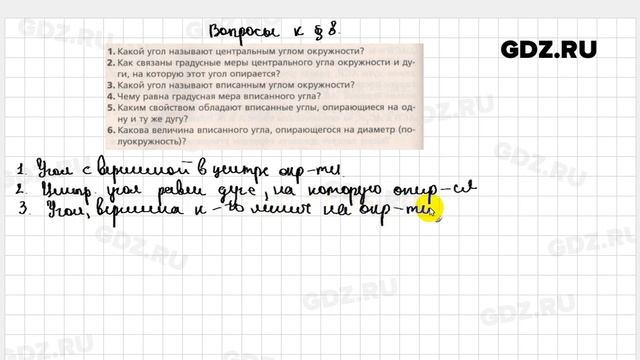 Вопросы к § 8.
GDZ.RU
1. Какой угол называют центральным углом окружности?
2. Как связаны градусные меры центрального угла окружности и ду-
ги, на которую этот угол опирается?
3. Какой угол называют вписанным углом окружности?
4. Чему равна градусная мера вписанного угла?
5. Каким свойством обладают вписанные углы, опирающиеся на од-
ну и ту же дугу?
6. Какова величина вписанного угла, опирающегося на диаметр (по-
луокружность)?
1. Угол с вершиной в центре окр-ти.
2. Центр. угол равен дуге, на которую опир-ся
3. Угол, вершина к-го лежит на окр-ти
GDZ.RU
GDZ.RU
GDZ.RU
GDZ.RU
GDZ.RU
GDZ.RU